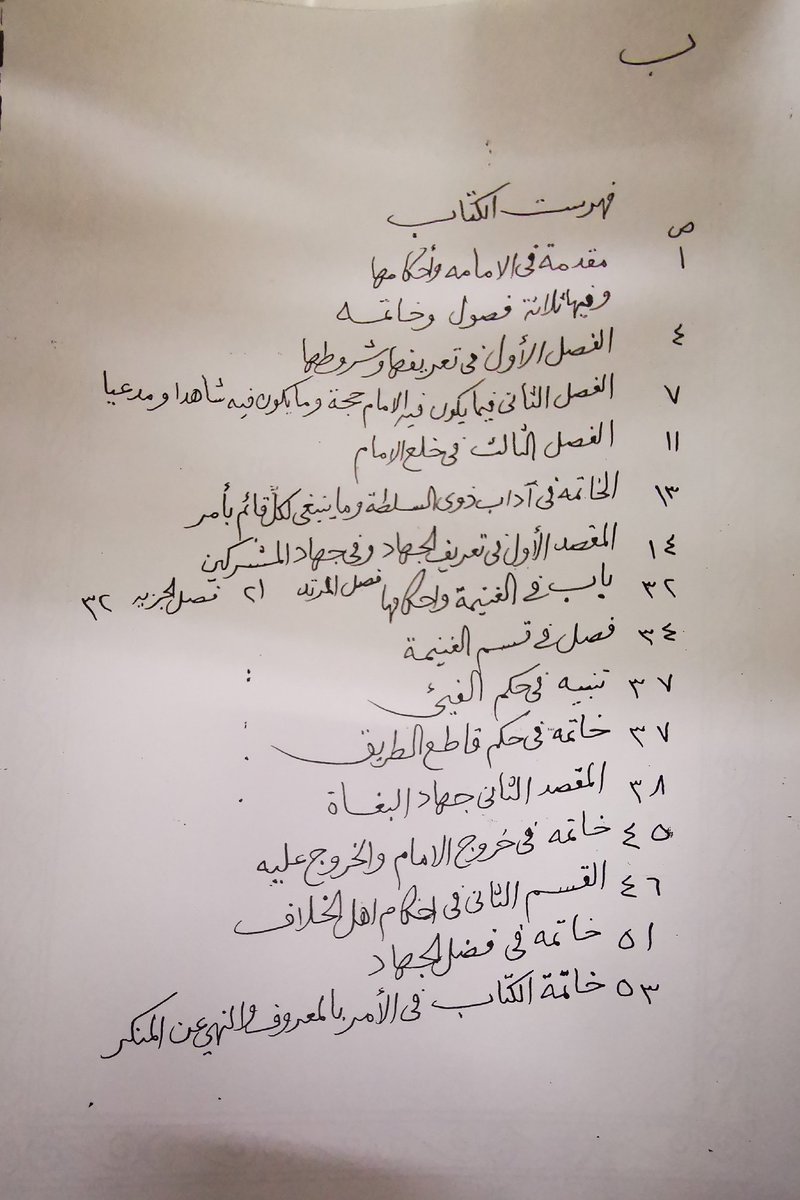 ب
فهرست الكتاب
ص
١ مقدمة فى الامامه وأحكامها
وفيها ثلاثة فصول وخاتمه
٤ الفصل الأول فى تعريفها وشروطها
٧ الفصل الثانى فيما يكون فيه الامام حجة وما يكون فيه شاهدا ومدعيا
١١ الفصل الثالث فى خلع الامام
١٣ الخاتمه فى آداب ذوى السلطة وما ينبغى لكل قائم بأمر
١٤ المقصد الأول فى تعريف الجهاد وفى جهاد المشركين
٣٢ باب فى الغنيمة واحكامها فصل المرتد ٢١ فصل الجزيه ٣٢
٣٤ فصل فى قسم الغنيمة
٣٧ تنبيه فى حكم الفيئ
٣٧ خاتمه فى حكم قاطع الطريق
٣٨ المقصد الثانى جهاد البغاة
٤٥ خاتمه فى خروج الامام والخروج عليه
٤٦ القسم الثانى فى احكام اهل الخلاف
٥١ خاتمه فى فضل الجهاد
٥٣ خاتمة الكتاب فى الأمر بالمعروف والنهي عن المنكر